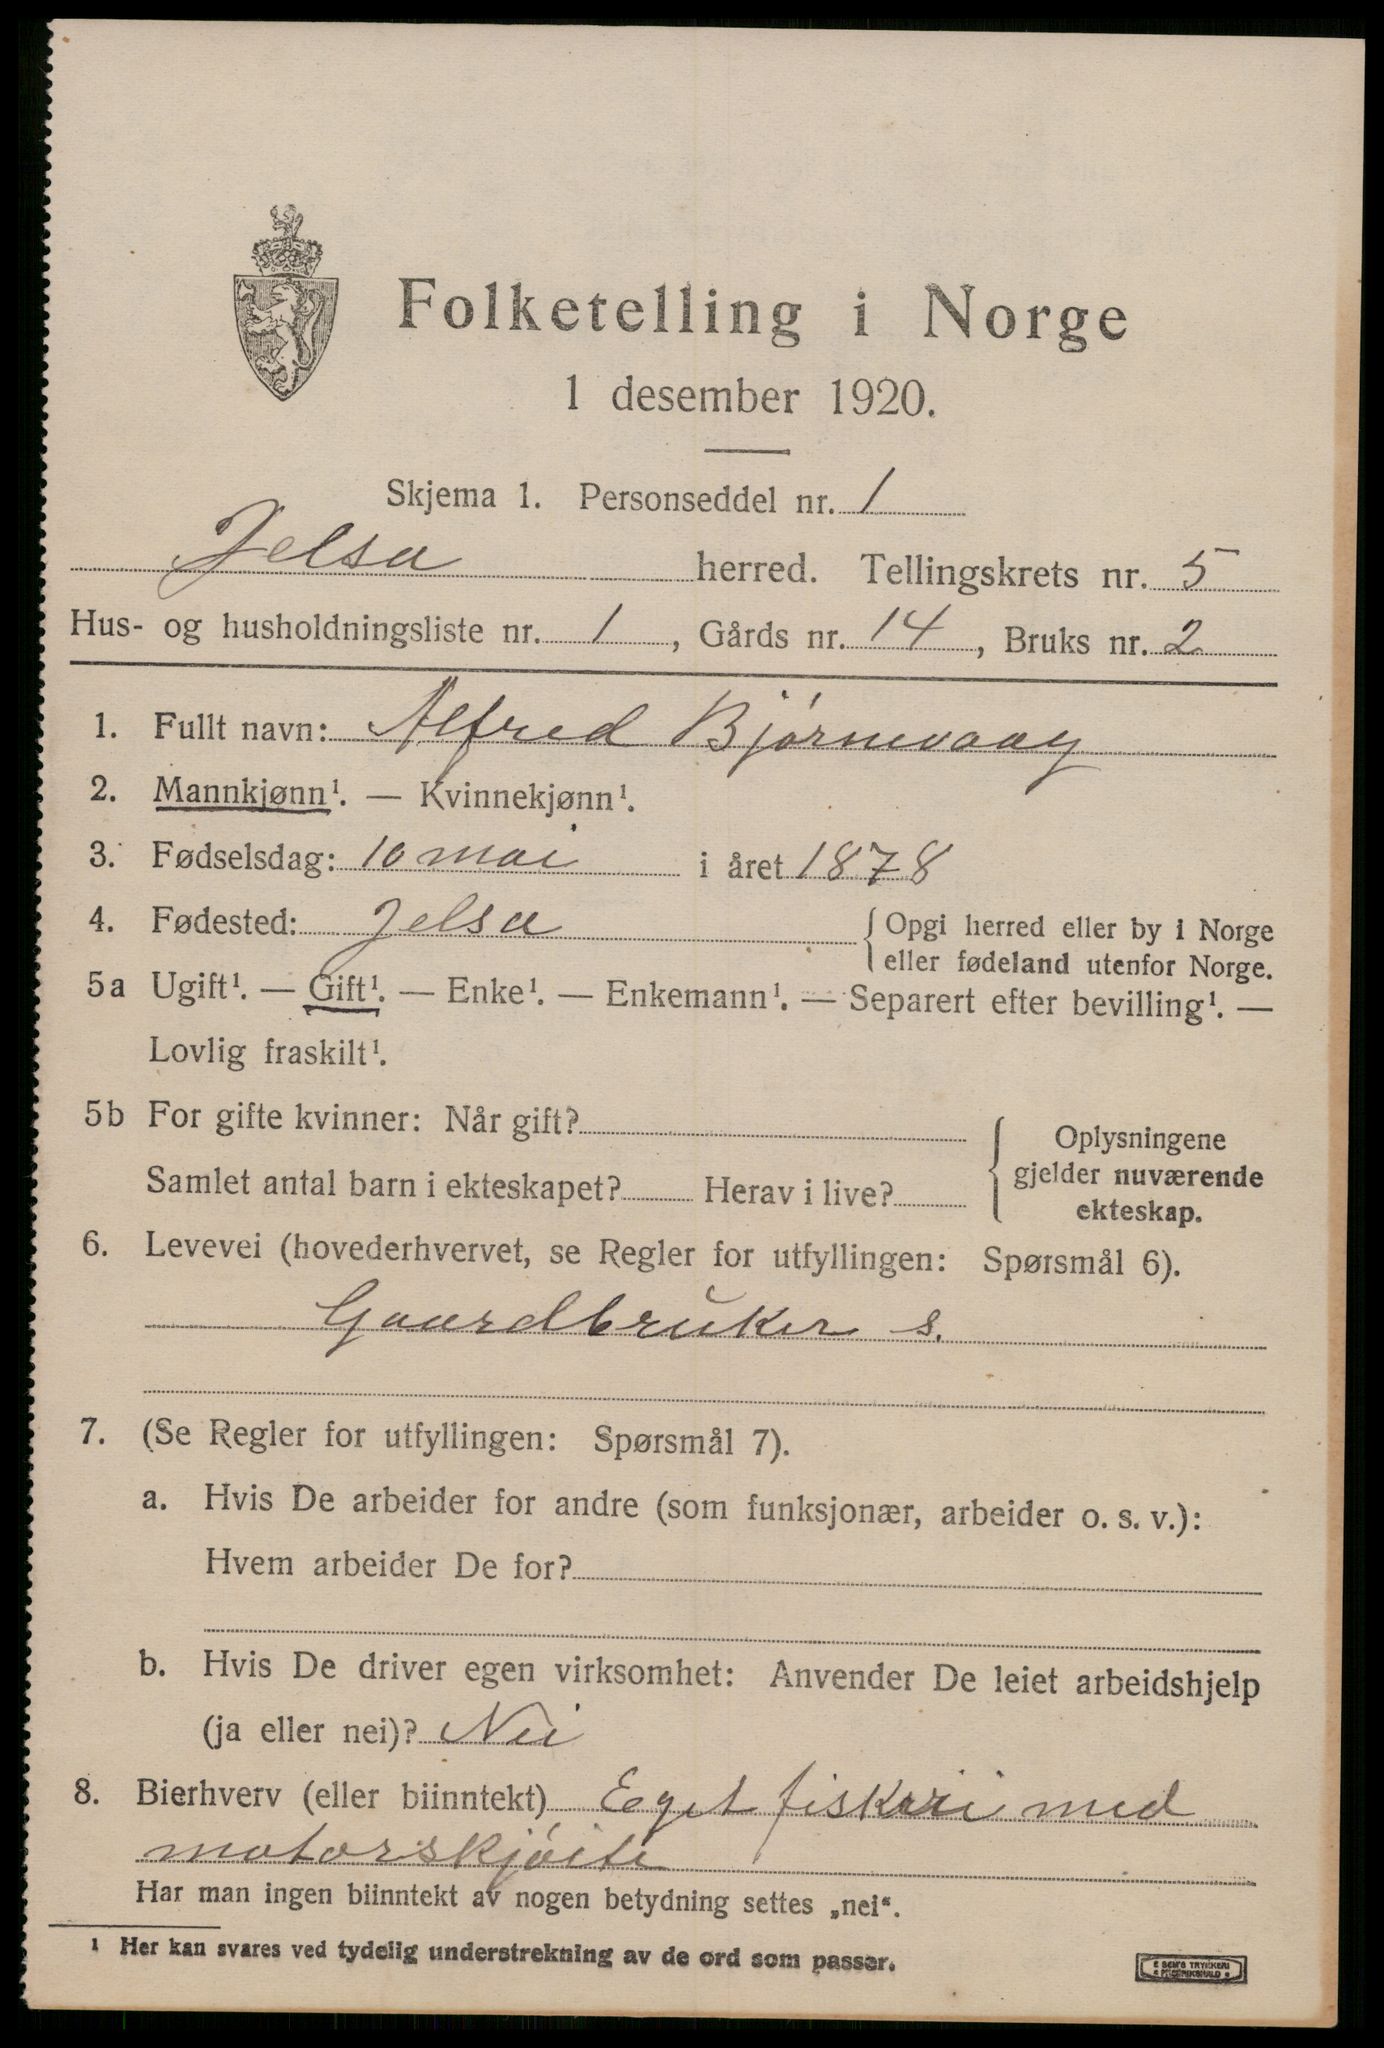 Folketelling i Norge
1 desember 1920.
Skjema 1. Personseddel nr. 1
Jelsa herred. Tellingskrets nr. 5
Hus- og husholdningsliste nr. 1, Gårds nr. 14, Bruks nr. 2
1. Fullt navn: Alfred Bjørnevaag
2. Mannkjønn¹. — Kvinnekjønn¹.
3. Fødselsdag: 10 mai i året 1878
4. Fødested: Jelsa { Opgi herred eller by i Norge
eller fødeland utenfor Norge.
5a Ugift¹. — Gift¹. — Enke¹. — Enkemann¹. — Separert efter bevilling¹. —
Lovlig fraskilt¹.
5b For gifte kvinner: Når gift?
Samlet antal barn i ekteskapet? Herav i live?
{ Oplysningene
gjelder nuværende
ekteskap.
6. Levevei (hovederhvervet, se Regler for utfyllingen: Spørsmål 6).
Gaardbruker s.
7. (Se Regler for utfyllingen: Spørsmål 7).
a. Hvis De arbeider for andre (som funksjonær, arbeider o. s. v.):
Hvem arbeider De for?
b. Hvis De driver egen virksomhet: Anvender De leiet arbeidshjelp
(ja eller nei)? Nei
8. Bierhverv (eller biinntekt) Eget fiskeri med
motorskjöite
Har man ingen biinntekt av nogen betydning settes „nei“.
¹ Her kan svares ved tydelig understrekning av de ord som passer.
E SEM'S TRYKKERI
FREDRIKSHALD